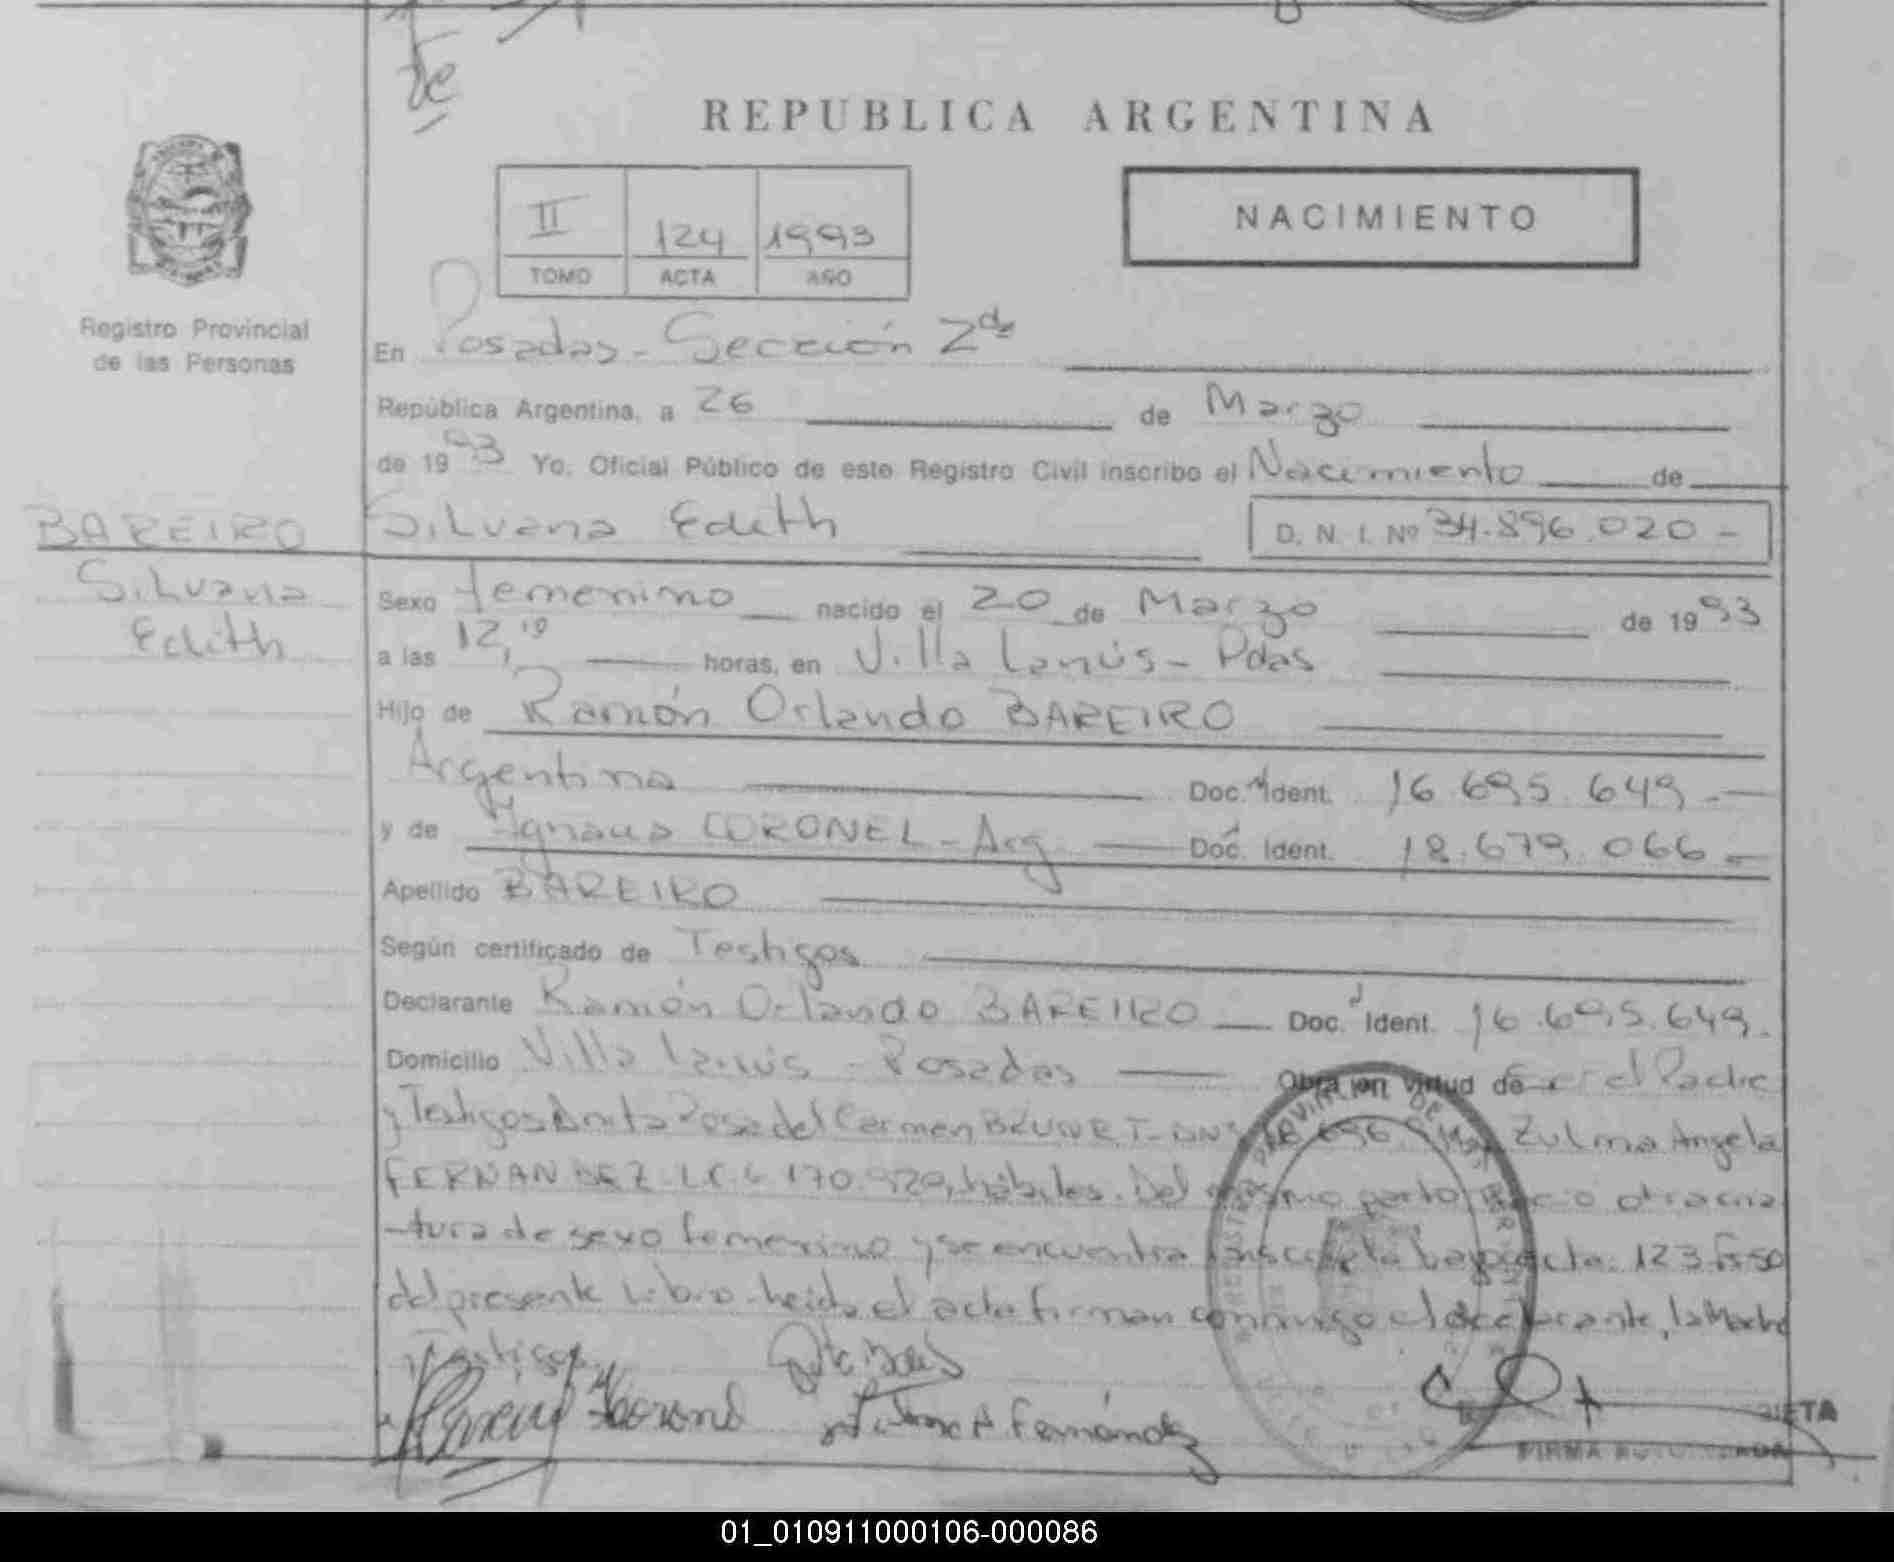 de
REPUBLICA ARGENTINA
II 124 1993
TOMO ACTA AÑO
NACIMIENTO
Registro Provincial
de las Personas
En Posadas - Sección 2da
República Argentina, a 26 de Marzo
de 1993 Yo, Oficial Público de este Registro Civil inscribo el Nacimiento de
BAREIRO
Silvana
Edith
Silvana Edith D. N. I. Nº 34.896.020 -
Sexo femenino nacido el 20 de Marzo de 1993
a las 12,10 horas, en Villa Lanús - Pdas
Hijo de Ramón Orlando BAREIRO
Argentina Doc. Ident. 16.695.649 -
y de Ignacia CORONEL - Arg Doc. Ident. 18.679.066 -
Apellido BAREIRO
Según certificado de Testigos
Declarante Ramón Orlando BAREIRO Doc. Ident. 16.695.649.
Domicilio Villa Lanús - Posadas Obra en virtud de Ser el Padre
y Testigos Anita Rosa del Carmen Zulma Angela
FERNANDEZ L.C. 6.170.920, hábiles. Del mismo parto nació otra cria
-tura de sexo femenino y se encuentra inscripta bajo acta: 123 Fs 50
del presente Libro - Leída el acta firman conmigo el declarante, la Madre
y Testigos.
Coronel A. Fernández
FIRMA AUTORIZADA
01_010911000106-000086